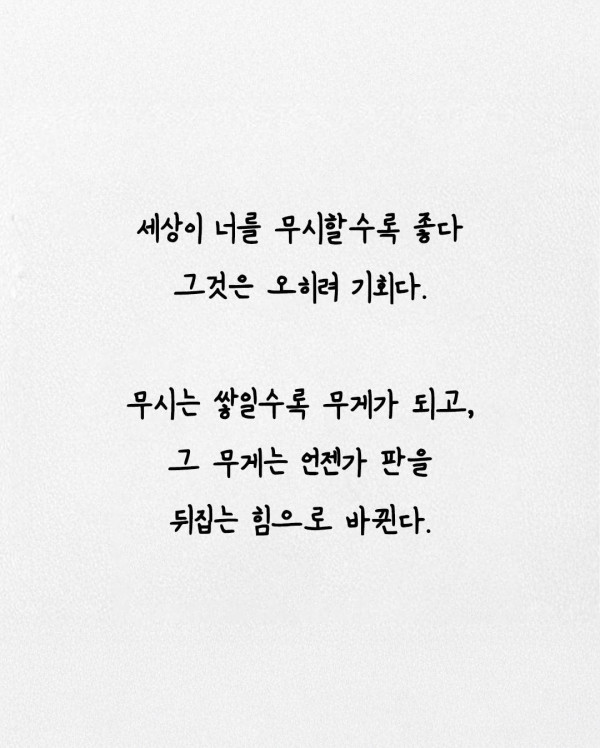 세상이 너를 무시할수록 좋다
그것은 오히려 기회다.
무시는 쌓일수록 무게가 되고,
그 무게는 언젠가 판을
뒤집는 힘으로 바뀐다.